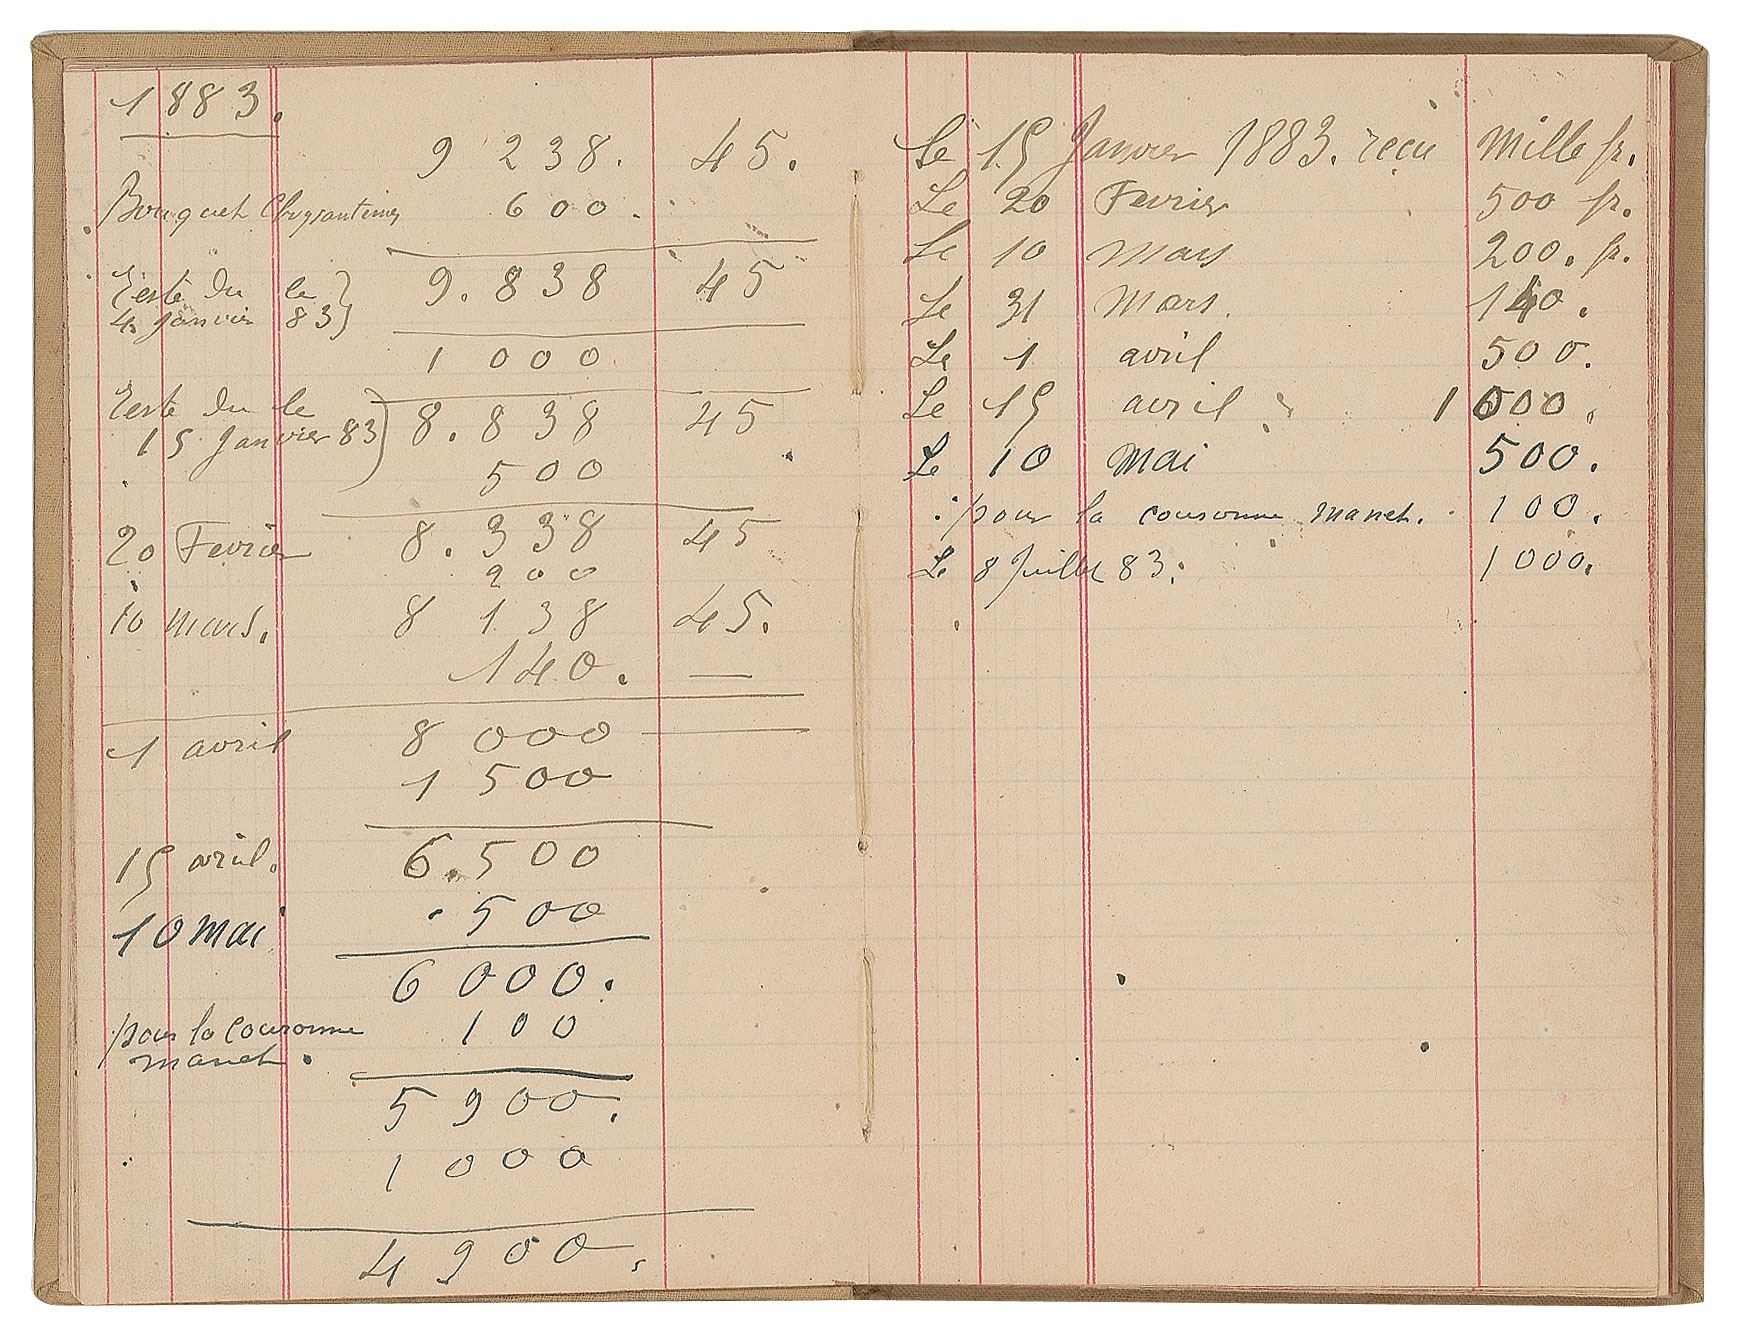 1883.
9 238. 45.
Bouquet Chrysantemes 600.
Reste du le 9.838 45
4 Janvier 83
1 000
Reste du le 8.838 45
15 Janvier 83
500
20 Fevrier 8.338 45
200
10 mars. 8 138 45.
140. —
1 avril 8 000 —
1 500
15 avril. 6.500
10 Mai 500
6 000.
pour la couronne 100
manet.
5 900.
1 000
4 900.
Le 15 Janvier 1883. recu Mille fr.
Le 20 Fevrier 500 fr.
Le 10 Mars 200. fr.
Le 31 Mars. 140.
Le 1 avril 500.
Le 15 avril 1000.
Le 10 Mai 500.
pour la couronne manet. 100.
Le 8 Juillet 83. 1000.